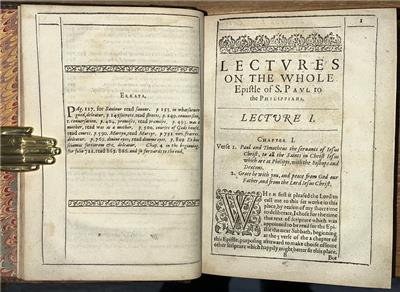 ERRATA.
PAg. 117. for Saviour read savour. p. 153. in whatsoever
good, deleatur, p. 249. conversion,
r. conversation, p. 404. promises, read promise. p. 493. was a
mother, read was as a mother. p. 500. courts of Gods house,
read court, p. 590. Martyr, read Martyrs. p. 752. two, graves,
deleatur, p. 765. divine eyes, read divine eye. p. 829. Ex
deleatur. Chap. 4. in the beginning
for folio 722. read 863. 866. and so forwards to the end.
1
LECTVRES
ON THE WHOLE
Epistle of S. PAVL to
the PHILIPPIANS.
LECTVRE I.
CHAPTER I.
Verse 1. Paul and Timotheus the servants of Iesus
Christ, to all the Saints in Christ Iesus
which are at Philippi, with the Bishops and
Deacons.
2. Grace be with you, and peace from God our
Father, and from the Lord Iesus Christ.
WHen first it pleased the Lord to
call me to this set works in this
place, by reason of my short time
to deliberate, I chose for the time
that text of Scripture which was
appointed to be read for the Epi-
stle the next Sabbath, beginning
at the 5 verse of the 2 chapter of
this Epistle, purposing afterward to make choise of some
other Scripture which happily might better fit this place,
B
But